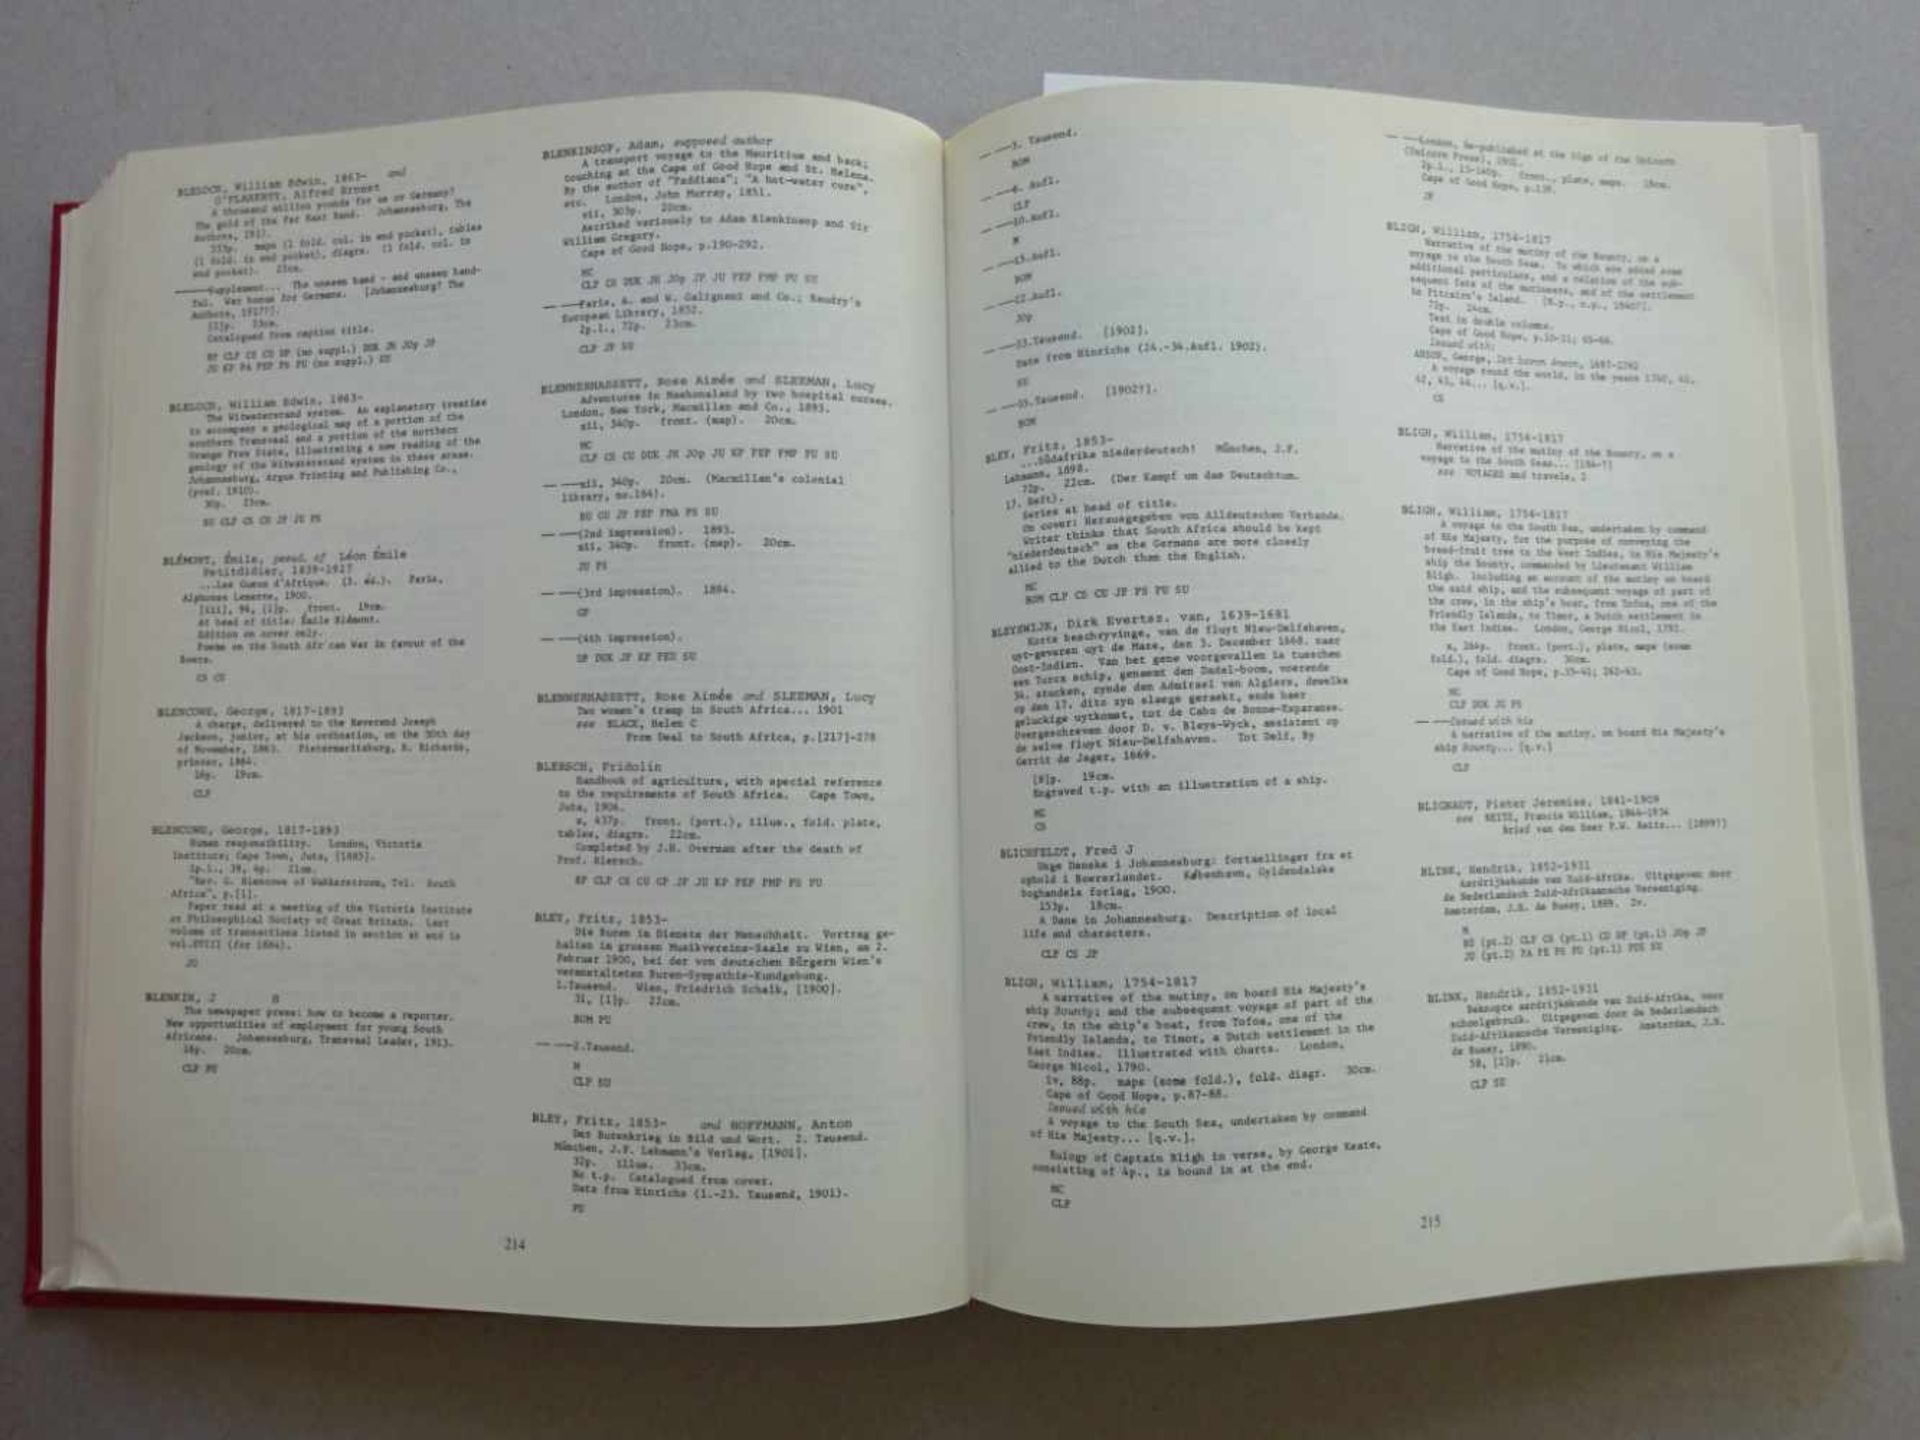 BLELOCH, William Edwin, 1863- and
O'FLAHERTY, Alfred Ernest
A thousand million pounds for us or Germany?
The gold of the Far East Rand. Johannesburg, The
Authors, 1917.
333p. maps (1 fold. col. in end pocket), tables
(1 fold. in end pocket), diagrs. (1 fold. col. in
end pocket). 23cm.
———Supplement... The unseen hand - and unseen hand-
ful. War bonus for Germans. [Johannesburg? The
Authors, 1917?].
[1]p. 33cm.
Catalogued from caption title.
BP CLP CS CU DP (no suppl.) DUK JH JOp JP
JU KP PA PEP PS PU (no suppl.) SU
BLELOCH, William Edwin, 1863-
The Witwatersrand system. An explanatory treatise
to accompany a geological map of a portion of the
southern Transvaal and a portion of the northern
Orange Free State, illustrating a new reading of the
geology of the Witwatersrand system in these areas.
Johannesburg, Argus Printing and Publishing Co.,
(pref. 1910).
30p. 23cm.
BU CLP CS CU JP JU PS
BLÉMONT, Émile, pseud. of Léon Émile
Petitdidier, 1839-1927
...Les Gueux d'Afrique. (3. éd.). Paris,
Alphonse Lemerre, 1900.
[iii], 94, [1]p. front. 19cm.
At head of title: Émile Blémont.
Edition on cover only.
Poems on the South Afr can War in favour of the
Boers.
CS CU
BLENCOWE, George, 1817-1893
A charge, delivered to the Reverend Joseph
Jackson, junior, at his ordination, on the 30th day
of November, 1863. Pietermaritzburg, R. Richards,
printer, 1864.
16p. 19cm.
CLP
BLENCOWE, George, 1817-1893
Human responsibility. London, Victoria
Institute; Cape Town, Juta, [1885].
2p.l., 39, 4p. 21cm.
"Rev. G. Blencowe of Wakkerstroom, Tvl. South
Africa", p.[1].
Paper read at a meeting of the Victoria Institute
or Philosophical Society of Great Britain. Last
volume of transactions listed in section at end is
vol.XVIII (for 1884).
JU
BLENKIN, J H
The newspaper press: how to become a reporter.
New opportunities of employment for young South
Africans. Johannesburg, Transvaal Leader, 1913.
18p. 20cm.
CLP PE
BLENKINSOP, Adam, supposed author
A transport voyage to the Mauritius and back;
touching at the Cape of Good Hope and St. Helena.
By the author of "Paddiana"; "A hot-water cure",
etc. London, John Murray, 1851.
vii, 303p. 20cm.
Ascribed variously to Adam Blenkinsop and Sir
William Gregory.
Cape of Good Hope, p.190-292.
MC
CLP CS DUK JH JOp JP JU PEP PMP PU SU
— ——Paris, A. and W. Galignani and Co.; Baudry's
European Library, 1852.
2p.l., 72p. 23cm.
CLP JP SU
BLENNERHASSETT, Rose Aimée and SLEEMAN, Lucy
Adventures in Mashonaland by two hospital nurses.
London, New York, Macmillan and Co., 1893.
xii, 340p. front. (map). 20cm.
MC
CLP CS CU DUK JH JOp JU KP PEP PMP PU SU
— ——xii, 340p. 20cm. (Macmillan's colonial
library, no.164).
BU GU JP PEP PMA PS SU
— ——(2nd impression). 1893.
xii, 340p. front. (map). 20cm.
JU PS
— ——(3rd impression). 1894.
GP
— ——(4th impression).
DP DUK JP KP PEU SU
BLENNERHASSETT, Rose Aimée and SLEEMAN, Lucy
Two women's tramp in South Africa... 1901
see BLACK, Helen C
From Deal to South Africa, p.[217]-278
BLERSCH, Fridolin
Handbook of agriculture, with special reference
to the requirements of South Africa. Cape Town,
Juta, 1906.
x, 437p. front. (port.), illus., fold. plate,
tables, diagrs. 22cm.
Completed by J.H. Overman after the death of
Prof. Blersch.
BP CLP CS CU GP JP JU KP PEP PMP PS PU
BLEY, Fritz, 1853-
Die Buren im Dienste der Menschheit. Vortrag ge-
halten im grossen Musikvereins-Saale zu Wien, am 2.
Februar 1900, bei der von deutschen Bürgern Wien's
veranstalteten Buren-Sympathie-Kundgebung.
1.Tausend. Wien, Friedrich Schalk, [1900].
31, [1]p. 22cm.
BOM PU
— ——2.Tausend.
M
CLP SU
BLEY, Fritz, 1853- and HOFFMANN, Anton
Der Burenkrieg in Bild und Wort. 2. Tausend.
München, J.F. Lehmann's Verlag, [1901].
32p. illus. 33cm.
No t.p. Catalogued from cover.
Date from Hinrichs (1.-23. Tausend, 1901).
PU
214
— ——3. Tausend.
BOM
— ——6. Aufl.
CLP
— ——10.Aufl.
M
— ——15.Aufl.
BOM
— ——22.Aufl.
JOp
— ——33.Tausend. [1902].
Date from Hinrichs (24.-34.Aufl. 1902).
SU
— ——35.Tausend. [1902?].
BOM
BLEY, Fritz, 1853-
...Südafrika niederdeutsch! München, J.F.
Lehmann, 1898.
72p. 22cm. (Der Kampf um das Deutschtum.
17. Heft).
Series at head of title.
On cover: Herausgegeben vom Alldeutschen Verbande.
Writer thinks that South Africa should be kept
"niederdeutsch" as the Germans are more closely
allied to the Dutch than the English.
MC
BOM CLP CS CU JP PS PU SU
BLEYSWIJK, Dirk Evertsz. van, 1639-1681
Korte beschryvinge, van de fluyt Nieu-Delfshaven,
uyt-gevaren uyt de Maze, den 3. December 1668. naer
Oost-Indien. Van het gene voorgevallen is tusschen
een Turcx schip, genaemt den Dadel-boom, voerende
34. stucken, zynde den Admirael van Algiers, dewelke
op den 17. dito zyn slaegs geraekt, ende haer
geluckige uytkomst, tot de Cabo de Bonne-Esparanse.
Overgeschreven door D. v. Bleys-Wyck, assistent op
de selve fluyt Nieu-Delfshaven. Tot Delf, By
Gerrit de Jager, 1669.
[8]p. 19cm.
Engraved t.p. with an illustration of a ship.
MC
CS
BLICHFELDT, Fred J
Unge Danske i Johannesburg: fortaellinger fra et
ophold i Boererlandet. København, Gyldendalske
boghandels forlag, 1900.
153p. 18cm.
A Dane in Johannesburg. Description of local
life and characters.
CLP CS JP
BLIGH, William, 1754-1817
A narrative of the mutiny, on board His Majesty's
ship Bounty; and the subsequent voyage of part of the
crew, in the ship's boat, from Tofoa, one of the
Friendly Islands, to Timor, a Dutch settlement in the
East Indies. Illustrated with charts. London,
George Nicol, 1790.
iv, 88p. maps (some fold.), fold. diagr. 30cm.
Cape of Good Hope, p.87-88.
Issued with his
A voyage to the South Sea, undertaken by command
of His Majesty... [q.v.].
Eulogy of Captain Bligh in verse, by George Keate,
consisting of 4p., is bound in at the end.
MC
CLP
— ——London, Re-published at the Sign of the Unicorn
(Unicorn Press), 1901.
2p.l., 15-140p. front., plate, maps. 18cm.
Cape of Good Hope, p.139.
JP
BLIGH, William, 1754-1817
Narrative of the mutiny of the Bounty, on a
voyage to the South Seas. To which are added some
additional particulars, and a relation of the sub-
sequent fate of the mutineers, and of the settlement
in Pitcairn's Island. [N.p., n.p., 1840?].
72p. 24cm.
Text in double columns.
Cape of Good Hope, p.10-11; 65-66.
Issued with:
ANSON, George, 1st baron Anson, 1697-1762
A voyage round the world, in the years 1740, 41,
42, 43, 44... [q.v.].
CS
BLIGH, William, 1754-1817
Narrative of the mutiny of the Bounty, on a
voyage to the South Seas... [184-?]
see VOYAGES and travels, 2
BLIGH, William, 1754-1817
A voyage to the South Sea, undertaken by command
of His Majesty, for the purpose of conveying the
bread-fruit tree to the West Indies, in His Majesty's
ship the Bounty, commanded by Lieutenant William
Bligh. Including an account of the mutiny on board
the said ship, and the subsequent voyage of part of
the crew, in the ship's boat, from Tofoa, one of the
Friendly Islands, to Timor, a Dutch settlement in
the East Indies. London, George Nicol, 1792.
x, 264p. front. (port.), plate, maps (some
fold.), fold. diagrs. 30cm.
Cape of Good Hope, p.35-41; 262-63.
MC
CLP DUK JU PS
— ——Issued with his
A narrative of the mutiny, on board His Majesty's
ship Bounty... [q.v.]
CLP
BLIGNAUT, Pieter Jeremias, 1841-1909
see REITZ, Francis William, 1844-1934
Brief van den Heer F.W. Reitz... [1899?]
BLINK, Hendrik, 1852-1931
Aardrijkskunde van Zuid-Afrika. Uitgegeven door
de Nederlandsch Zuid-Afrikaansche Vereeniging.
Amsterdam, J.H. de Bussy, 1889. 2v.
M
BU (pt.2) CLP CS (pt.1) CU DP (pt.1) JOp JP
JU (pt.2) PA PE PS PU (pt.1) PUS SU
BLINK, Hendrik, 1852-1931
Beknopte aardrijkskunde van Zuid-Afrika, voor
schoolgebruik. Uitgegeven door de Nederlandsch
Zuid-Afrikaansche Vereeniging. Amsterdam, J.H.
de Bussy, 1890.
58, [2]p. 21cm.
CLP SU
215